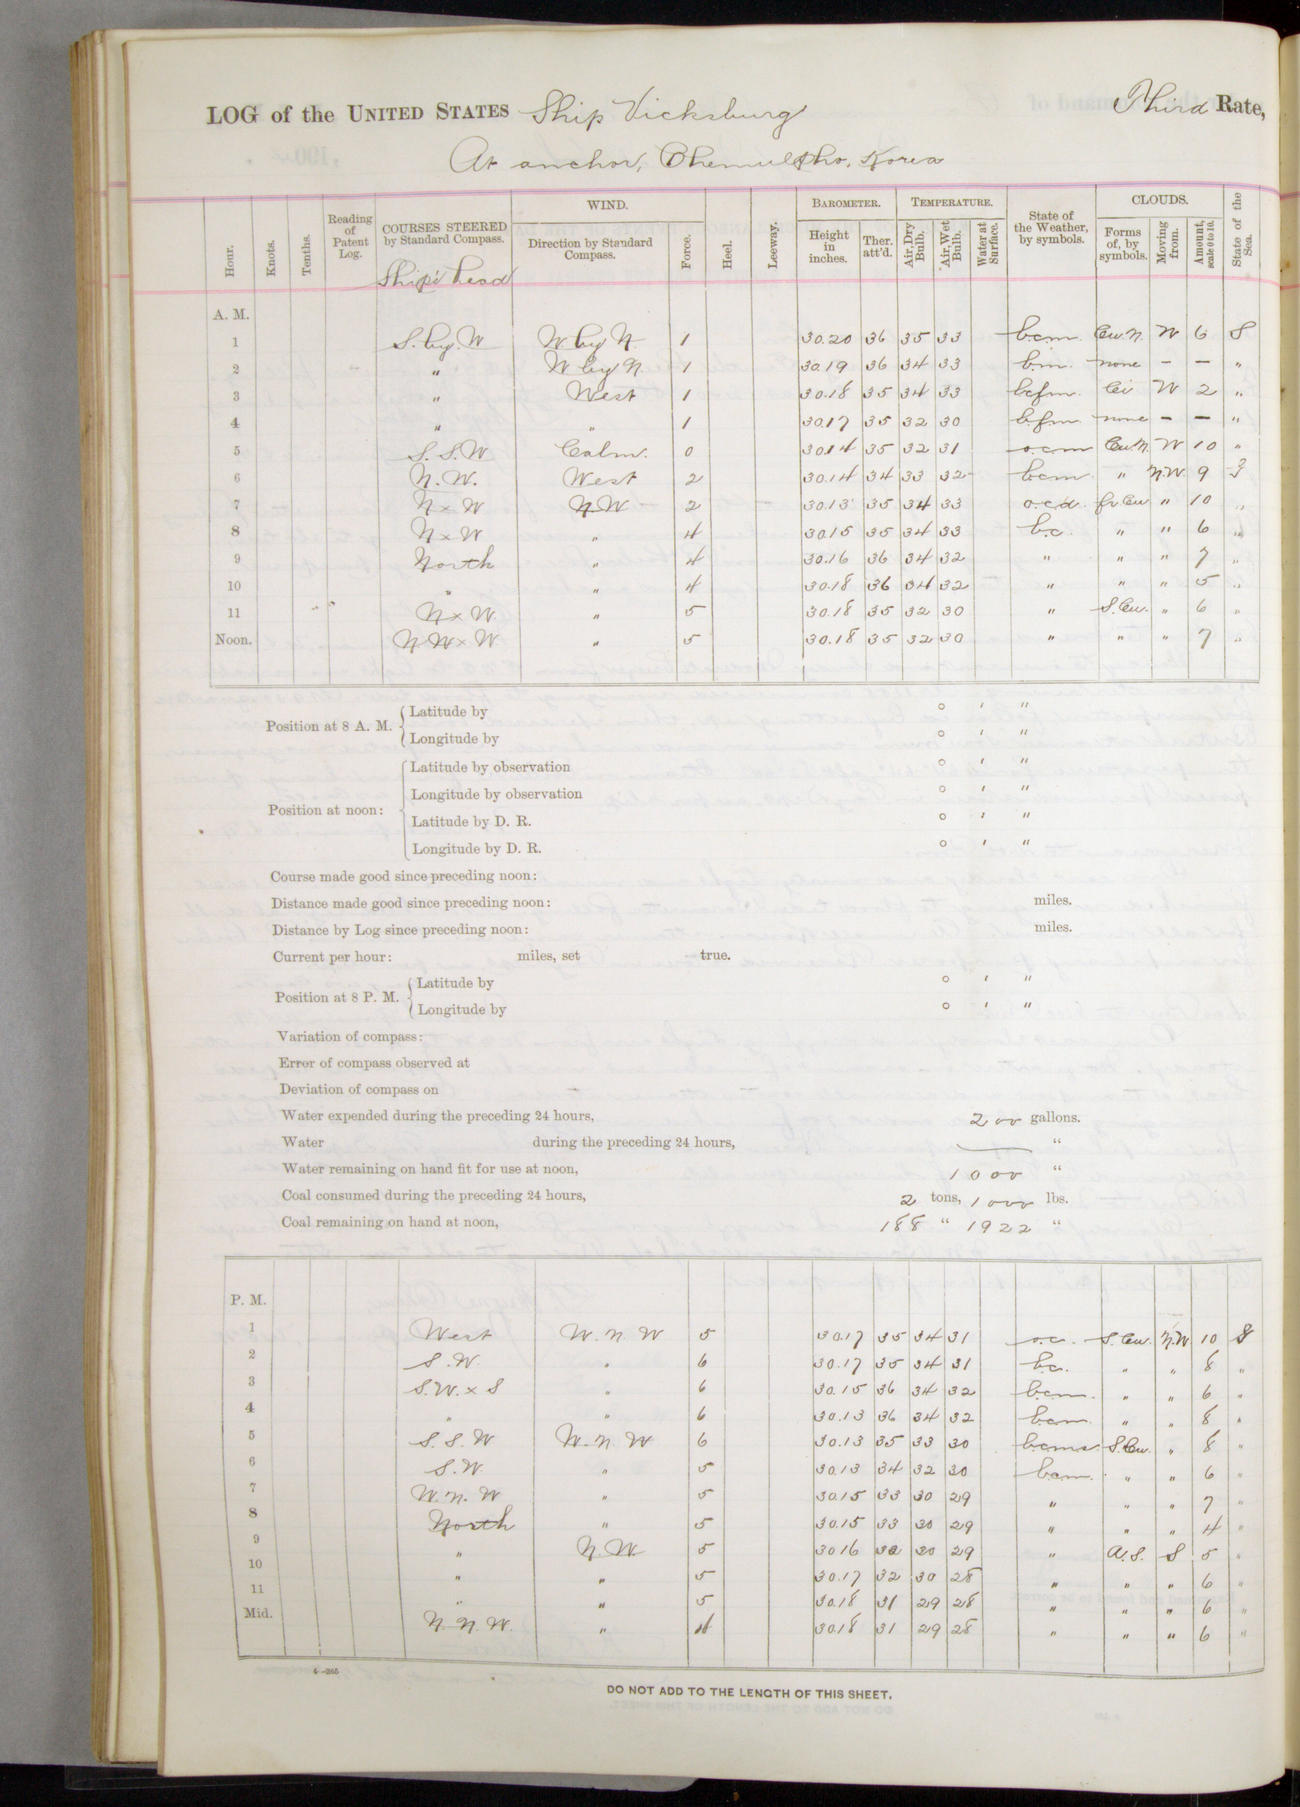 LOG of the UNITED STATES Ship Vicksburg Third Rate,
At anchor, Chemulpho, Korea
Hour. Knots. Tenths. Reading of Patent Log. COURSES STEERED by Standard Compass. WIND. Direction by Standard Compass. Force. Heel. Leeway. BAROMETER. Height in inches. Ther. att'd. TEMPERATURE. Air, Dry Bulb. Air, Wet Bulb. Water at Surface. State of the Weather, by symbols. CLOUDS. Forms of, by symbols. Moving from. Amount, scale 0 to 10. State of the Sea.
Ship's head
A. M.
1 S. by. W W by N 1 30.20 36 35 33 b.c.m. Cu.N. W 6 S
2 " W by N 1 30.19 36 34 33 b.m. none – – "
3 " West 1 30.18 35 34 33 bcfm. Ci W 2 "
4 " " 1 30.17 35 32 30 b.fm. none – – "
5 S. S. W Calm. 0 30.14 35 32 31 o.c.m Cu.N. W 10 "
6 N. W. West 2 30.14 34 33 32 bcm " N.W. 9
7 N x W N.W 2 30.13 35 34 33 o.c.d. fr. Cu " 10 "
8 N x W " 4 30.15 35 34 33 b.c. " " 6 "
9 North " 4 30.16 36 34 32 " " " 7 "
10 " " 4 30.18 36 34 32 " " " 5 "
11 N x W. " 5 30.18 35 32 30 " S. Cu. " 6 "
Noon. N W x W " 5 30.18 35 32 30 " " " 7 "
Position at 8 A. M. Latitude by ° ' "
Longitude by ° ' "
Position at noon: Latitude by observation ° ' "
Longitude by observation ° ' "
Latitude by D. R. ° ' "
Longitude by D. R. ° ' "
Course made good since preceding noon:
Distance made good since preceding noon: miles.
Distance by Log since preceding noon: miles.
Current per hour: miles, set true.
Position at 8 P. M. Latitude by ° ' "
Longitude by ° ' "
Variation of compass:
Error of compass observed at
Deviation of compass on
Water expended during the preceding 24 hours, 200 gallons.
Water during the preceding 24 hours, "
Water remaining on hand fit for use at noon, 1000 "
Coal consumed during the preceding 24 hours, 2 tons, 1000 lbs.
Coal remaining on hand at noon, 188 " 1922 "
P. M.
1 West W. N W 5 30.17 35 34 31 o.c. S. Cu. N.W 10 S
2 S. W. " 6 30.17 35 34 31 b.c. " " 8 "
3 S.W. x S " 6 30.15 36 34 32 bcm. " " 6 "
4 " " 6 30.13 36 34 32 bcm. " " 8 "
5 S. S. W W. N W 6 30.13 35 33 30 bcms S. Cu. " 8 "
6 S.W. " 5 30.13 34 32 30 bcm. " " 6 "
7 W. N. W " 5 30.15 33 30 29 " " " 7 "
8 North " 5 30.15 33 30 29 " " " 4 "
9 " N. W 5 30.16 32 30 29 " A. S. S 5 "
10 " " 5 30.17 32 30 28 " " " 6 "
11 " " 5 30.18 31 29 28 " " " 6 "
Mid. N. N. W. " 4 30.18 31 29 28 " " " 6 "
6—265
DO NOT ADD TO THE LENGTH OF THIS SHEET.